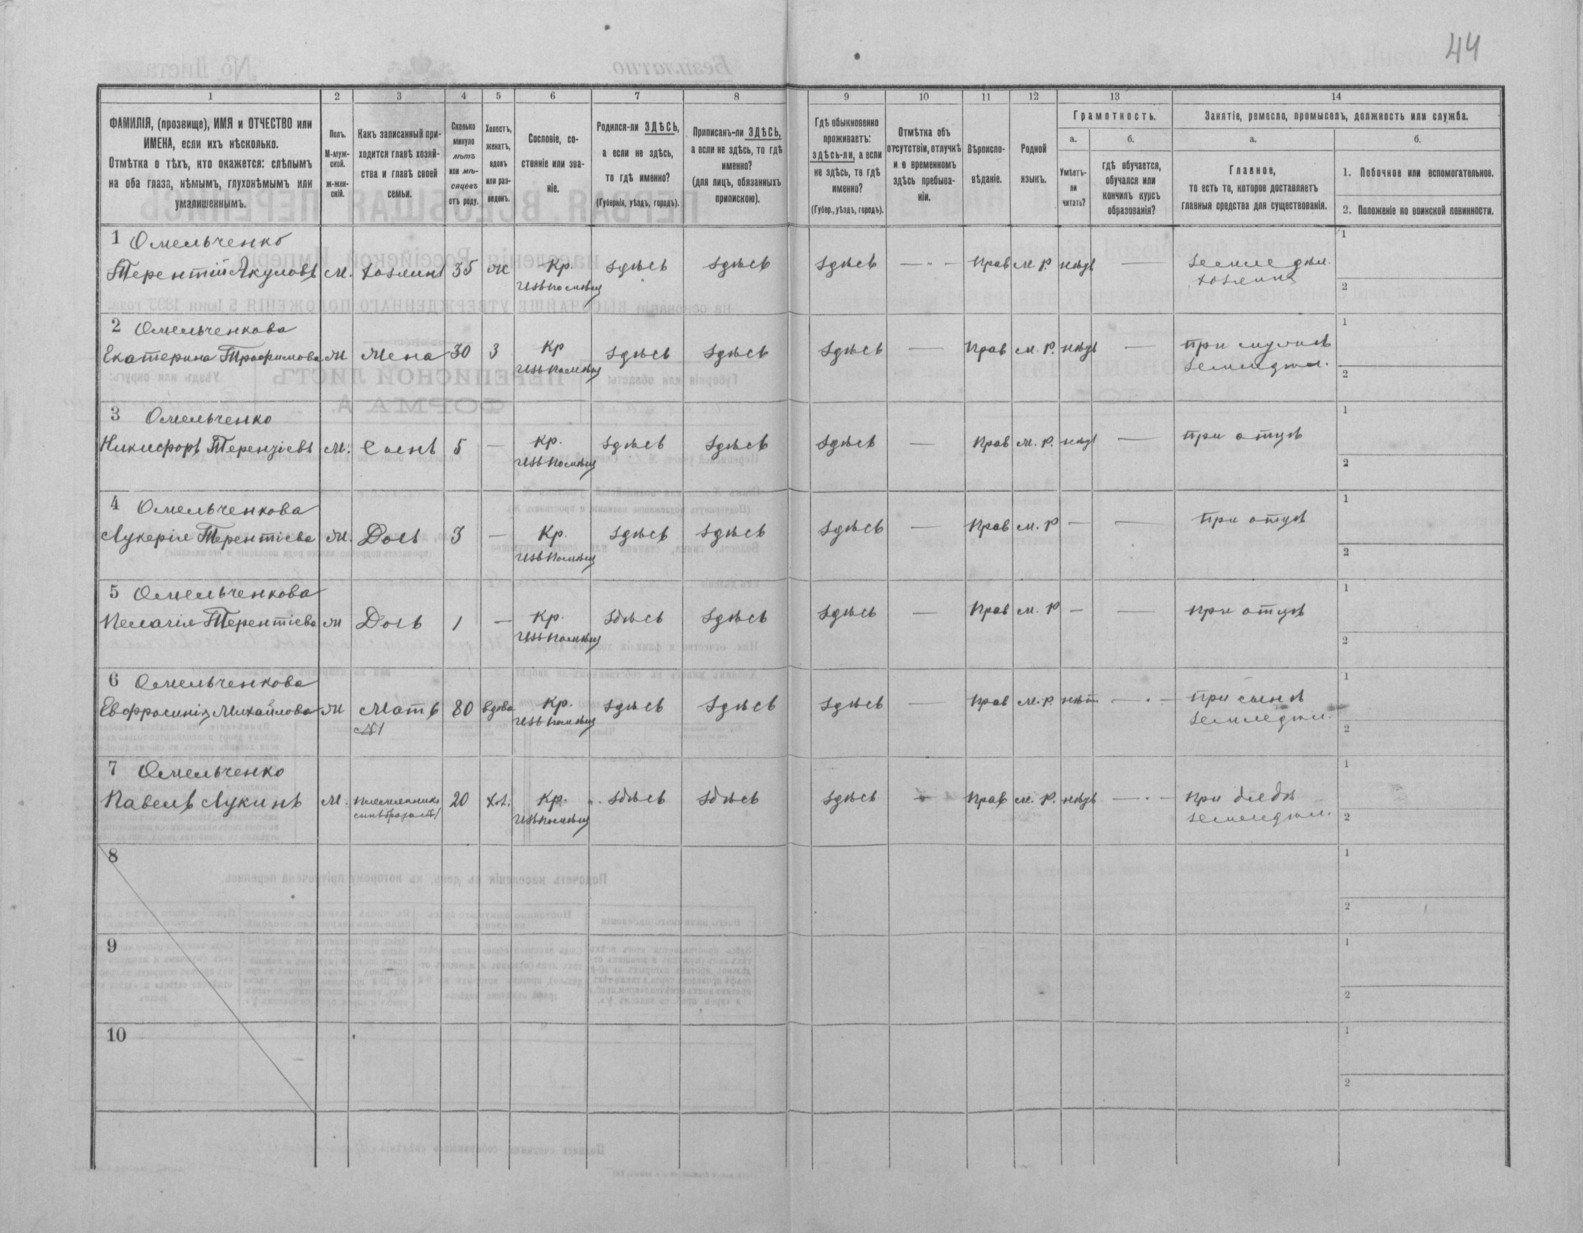 44
1
2
3
4
5
6
7
8
9
10
11
12
13
14
ФАМИЛІЯ, (прозвище), ИМЯ и ОТЧЕСТВО или
ИМЕНА, если ихъ нѣсколько.
Отмѣтка о тѣхъ, кто окажется: слѣпымъ
на оба глаза, нѣмымъ, глухонѣмымъ или
умалишеннымъ.
Полъ.
М-муж-
ской.
ж-жен-
скій.
Какъ записанный при-
ходится главѣ хозяй-
ства и главѣ своей
семьи.
Сколько
минуло
лѣтъ
или мѣ-
сяцевъ
отъ роду.
Холостъ,
женатъ,
вдовъ
или раз-
веденъ.
Сословіе, со-
стояніе или зва-
ніе.
Родился-ли ЗДѢСЬ,
а если не здѣсь,
то гдѣ именно?
(Губернія, уѣздъ, городъ).
Приписанъ-ли ЗДѢСЬ,
а если не здѣсь, то гдѣ
именно?
(для лицъ, обязанныхъ
припискою).
Гдѣ обыкновенно
проживаетъ:
здѣсь-ли, а если
не здѣсь, то гдѣ
именно?
(Губер., уѣздъ, городъ).
Отмѣтка объ
отсутствіи, отлучкѣ
и о временномъ
здѣсь пребыва-
ніи.
Вѣроиспо-
вѣданіе.
Родной
языкъ.
Грамотность.
а.
Умѣетъ-
ли
читать?
б.
гдѣ обучается,
обучался или
кончилъ курсъ
образованія?
Занятіе, ремесло, промыселъ, должность или служба.
а.
Главное,
то есть то, которое доставляетъ
главныя средства для существованія.
б.
1. Побочное или вспомогательное.
2. Положеніе по воинской повинности.
1 Омельченко
Терентій Якуловъ м. хозяинъ 35 ж Кр. здѣсь здѣсь здѣсь — Прав м. р. нѣтъ — земледѣл. 1
изъ помѣщ хозяинъ 2
2 Омельченкова
Екатерина Трофимова ж Жена 30 з Кр здѣсь здѣсь здѣсь — Прав м. р. нѣтъ — при мужѣ 1
изъ помѣщ земледѣл. 2
3 Омельченко
Никифоръ Терентіевъ м. Сынъ 5 — Кр. здѣсь здѣсь здѣсь — Прав м. р. нѣтъ — при отцѣ 1
изъ помѣщ 2
4 Омельченкова
Лукерія Терентіева ж. Дочь 3 — Кр. здѣсь здѣсь здѣсь — Прав м. р — — при отцѣ 1
изъ помѣщ 2
5 Омельченкова
Пелагія Терентіева ж Дочь 1 — Кр. здѣсь здѣсь здѣсь — Прав м. р — — при отцѣ 1
изъ помѣщ 2
6 Омельченкова
Евфросинія Михайлова ж Мать 80 вдова Кр. здѣсь здѣсь здѣсь — Прав м. р нѣтъ — при сынѣ 1
№1 изъ помѣщ земледѣл. 2
7 Омельченко
Павелъ Лукинъ м. племянникъ 20 хол. Кр. здѣсь здѣсь здѣсь — Прав м. р. нѣтъ — при дядѣ 1
изъ помѣщ земледѣл. 2
8 1
2
9 1
2
10 1
2